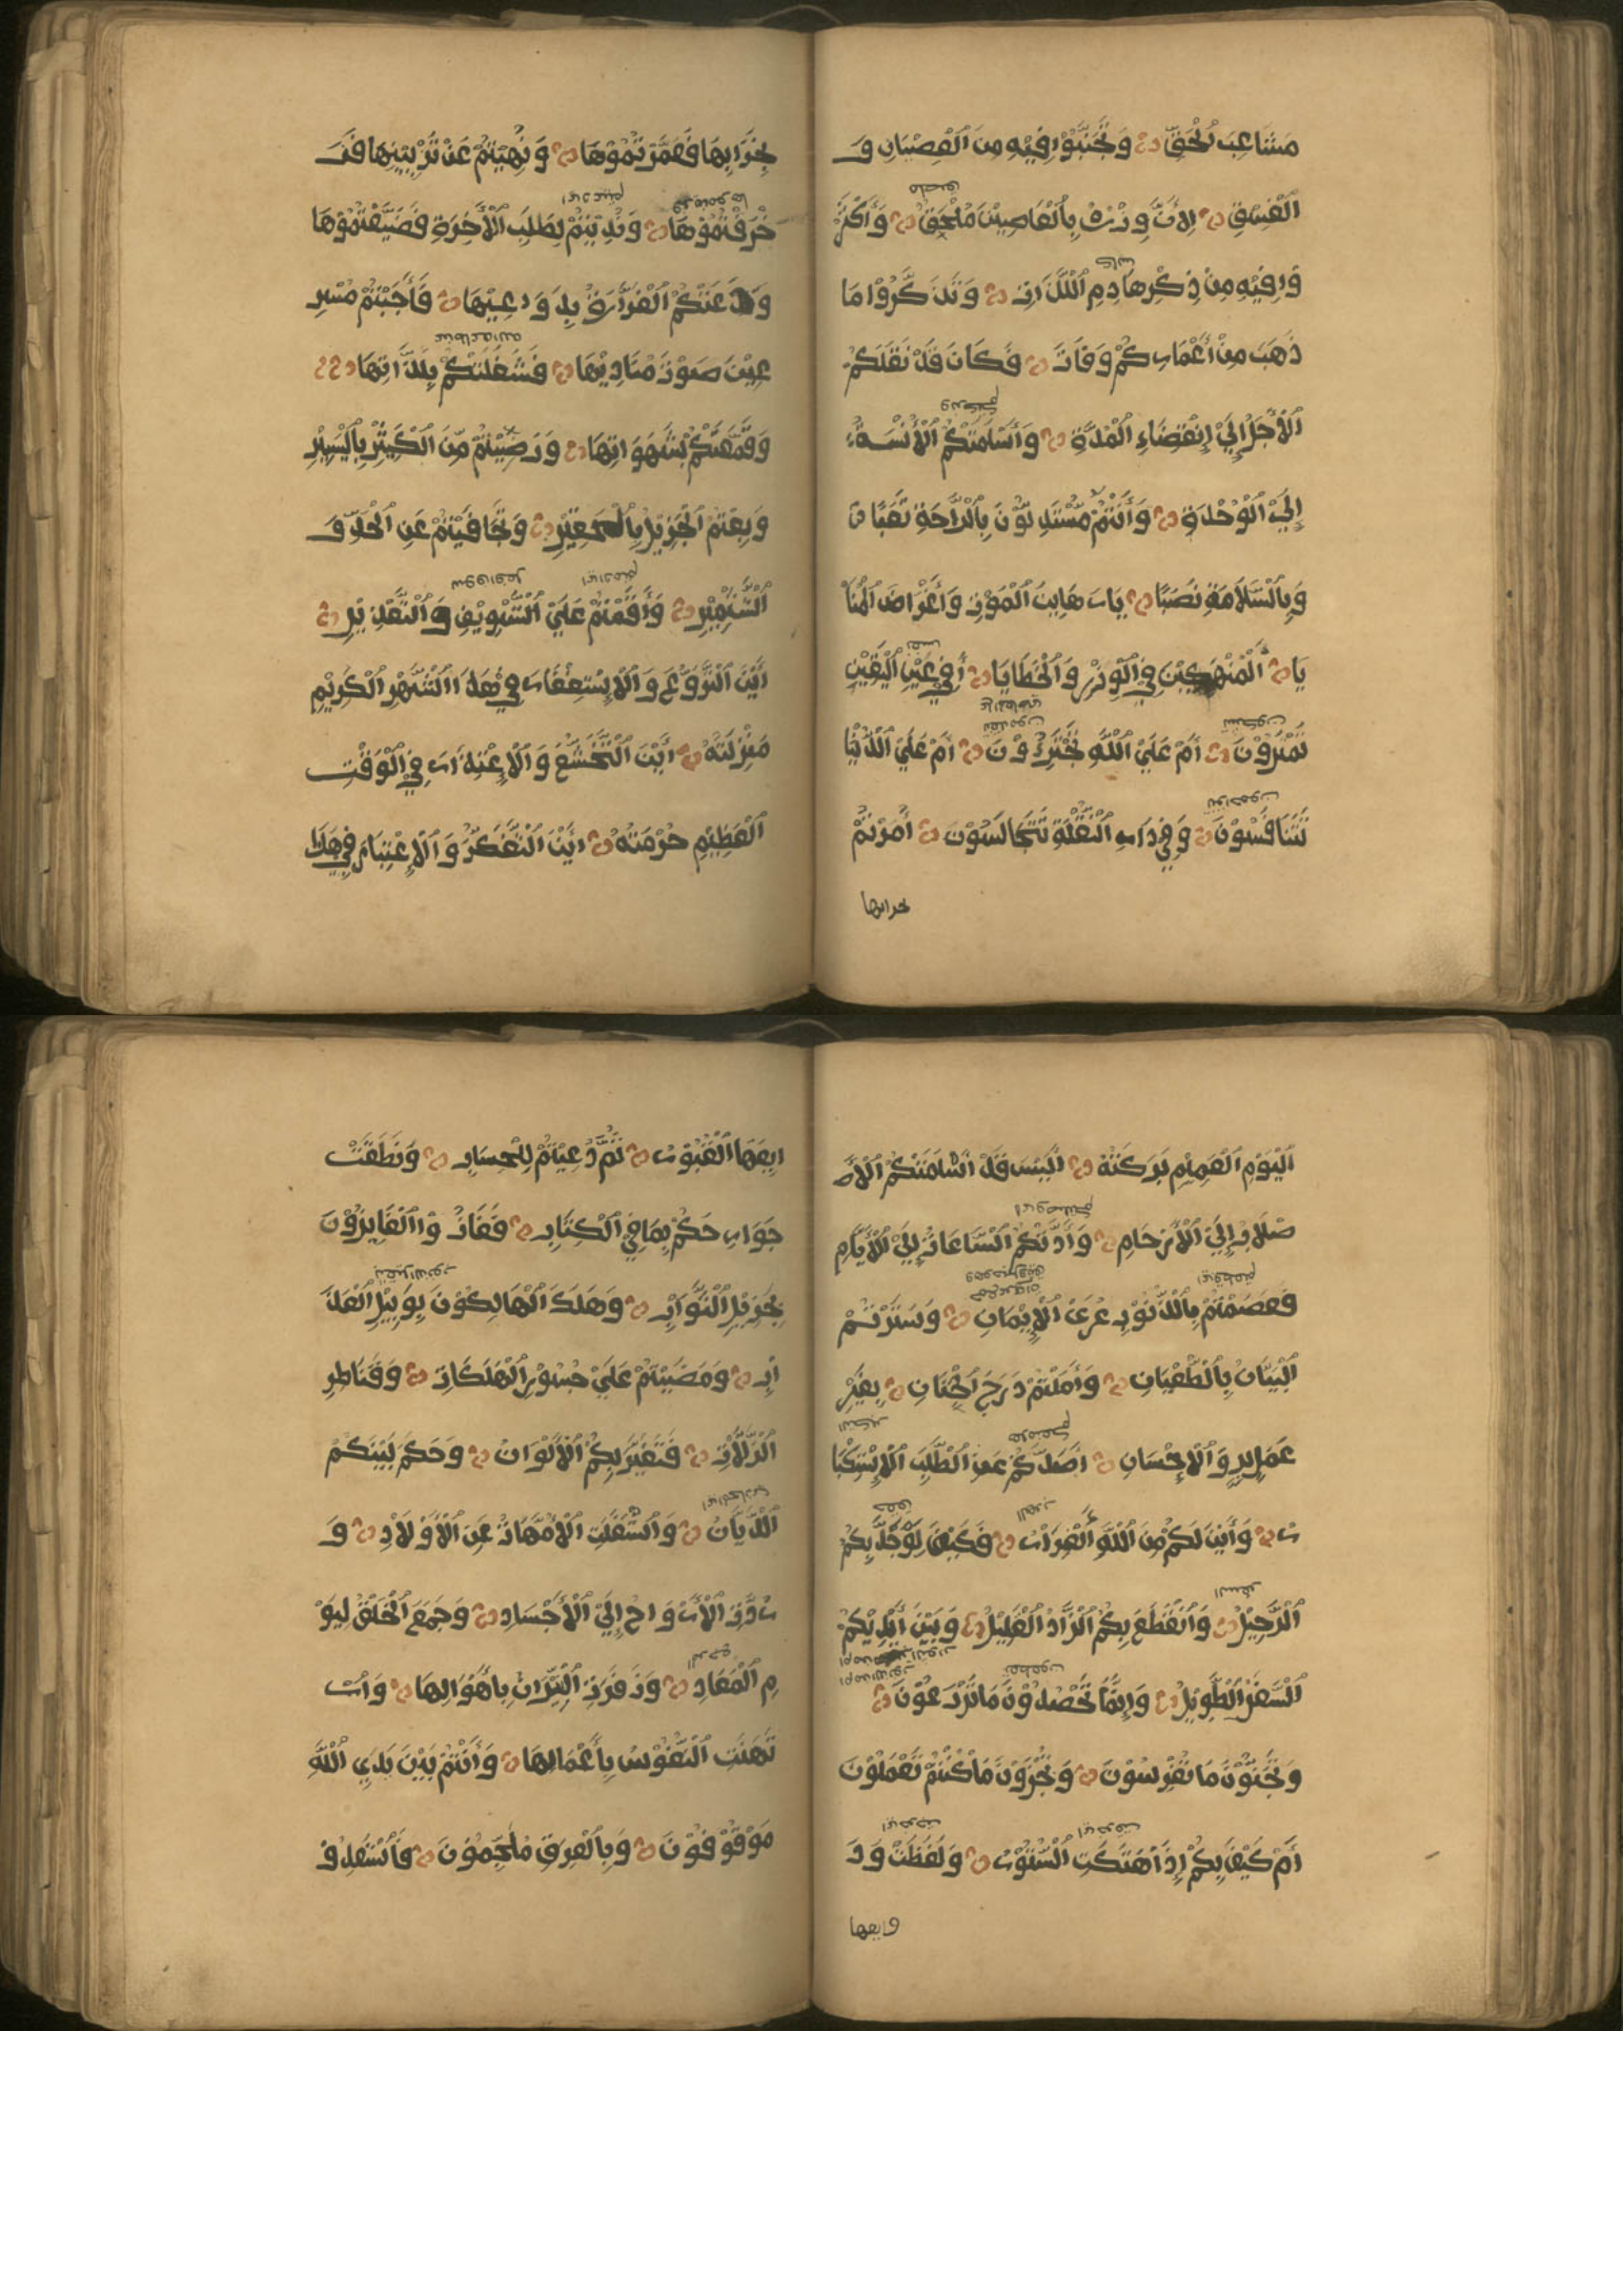 مَشَاعِبَ الْحَقِّ وَتَجَنَّبُوْا فِيْهِ مِنَ الْعِصْيَانِ وَ
الْفِسْقِ لِاَنَّ وِزْرَهُ بِالْعَاصِيْنَ مُلْحَقٌ وَأَكْثِرُ
وْا فِيْهِ مِنْ ذِكْرِ هَادِمِ اللَّذَّاتِ وَتَذَكَّرُوْا مَا
ذَهَبَ مِنْ أَعْمَارِكُمْ وَفَاتَ فَكَانَ قَدْ نَقَلَكُمُ
الْأَجَلُ إِلَىْ إِنْقِضَاءِ الْمُدَّةِ وَأَسْلَمَتْكُمُ الْأُنْسَةُ
إِلَىْ الْوُحْدَةِ وَأَنْتُمْ مُسْتَبْدِلُوْنَ بِالْرَّاحَةِ تَعَبًا
وَبِالْسَّلَامَةِ نَصَبًا يَارَهَايِنَ الْمَوْتِ وَأَغْرَاضَ الْمَنَا
يَا الْمُنْهَمِكِيْنَ فِيْ الْوِزْرِ وَالْخَطَايَا أَفِيْ عَيْنِ الْيَقِيْنِ
تَمْتَرُوْنَ أَمْ عَلَىْ اللّٰهِ تَجْتَرِؤُوْنَ أَمْ عَلَىْ الْدُنْيَا
تَتَنَافَسُوْنَ وَفِيْ دَارِ النُّقْلَةِ تَتَجَالَسُوْنَ أُمِرْتُمْ
بخرابها
بِخَرَابِهَا فَعَمَّرْتُمُوْهَا وَنُهِيْتُمْ عَنْ تَزْيِيْنِهَا فَزَ
خْرَفْتُمُوْهَا وَنُدِبْتُمْ لِطَلَبِ الْأَخِرَةِ فَضَيَّعْتُمُوْهَا
وَدَعَتْكُمُ الْغَرَّارَةُ بِدَوَاعِيْهَا فَأَجَبْتُمْ مُسْرِ
عِيْنَ صَوْتَ مُنَادِيْهَا فَشَغَلَتْكُمْ بِلَذَّاتِهَا
وَقَمَّعَتْكُمْ بِشَهَوَاتِهَا وَرَضِيْتُمْ مِنَ الْكَثِيْرِ بِالْيَسِيْرِ
وَبِعْتُمُ الْجَزِيْلَ بِالْحَقِيْرِ وَتَجَافَيْتُمْ عَنِ الْجَدِّ وَ
الْتَّشْمِيْرِ وَأَقَمْتُمْ عَلَىْ الْتَّسْوِيْفِ وَالْتَّعْذِيْرِ
أَيْنَ الْنُّزُوْعُ وَالْإِسْتِغْفَارُ فِيْ هٰذَا الْشَّهْرِ الْكَرِيْمِ
مَنْزِلَتُهُ أَيْنَ الْتَّخَشُّعُ وَالْإِعْتِذَارُ فِيْ الْوَقْتِ
الْعَظِيْمِ حُرْمَتُهُ اَيْنَ الْتَّفَكُّرُ وَالْإِعْتِبَارُ فِيْ هٰذَا
الْيَوْمِ الْعَمِيْمِ بَرَكَتُهُ أَلَيْسَ قَدْ اَسْلَمَتْكُمُ الْأَ
صْلَابُ إِلَىْ الْأَرْحَامِ وَأَدَّتْكُمُ الْسَّاعَاتُ إِلَىْ الْأَيَّامِ
فَعَصَمْتُمْ بِالْذُّنُوْبِ عُرَىْ الْإِيْمَانِ وَسَتَرْتُمُ
الْبَيَانَ بِالْطُّغْيَانِ وَأَمَلْتُمْ دَرَجَ الْجِنَانِ بِغَيْرِ
عَمَلِ الْبِرِّ وَالْإِحْسَانِ أَصَدَّكُمْ عَنِ الْطَّلَبِ الْإِسْتِكْبَا
رُ وَأَيْنَ لَكُمْ مِنَ اللّٰهِ الْفِرَارُ فَكَيْفَ لَوْ جَدَّ بِكُمُ
الْرَّحِيْلُ وَانْقَطَعَ بِكُمُ الْزَّادُ الْقَلِيْلُ وَبَيْنَ أَيْدِيْكُمُ
الْسَّفَرُ الْطَّوِيْلُ وَإِنَّمَا تَحْصُدُوْنَ مَا تَزْرَعُوْنَ
وَتَجْنُوْنَ مَا تَغْرِسُوْنَ وَتُجْزَوْنَ مَا كُنْتُمْ تَعْمَلُوْنَ
أَمْ كَيْفَ بِكُمْ إِذَا هُتِكَتِ الْسُّتُوْرُ وَلَفَظَتْ وَدَ
ايعها
ايِعَهَا الْقُبُوْرُ ثُمَّ دُعِيْتُمْ لِلْحِسَابِ وَنَطَقَتْ
جَوَارِحُكُمْ بِمَا فِيْ الْكِتَابِ فَفَازُوْا الْفَايِزُوْنَ
بِجَزِيْلِ الْثَّوَابِ وَهَلَكَ الْهَالِكُوْنَ بِوَبِيْلِ الْعَذَ
ابِ وَمَضَيْتُمْ عَلَىْ جُسُوْرِ الْهَلَكَاتِ وَقَنَاطِرِ
الْزَّلَّاتِ فَتَغَيَّرَ بِكُمُ الْأَلْوَانُ وَحَكَمَ بَيْنَكُمُ
الْدَّيَّانُ وَاشْتَغَلَتِ الْأُمَّهَاتُ عَنِ الْأَوْلَادِ وَ
رُدَّتِ الْأَرْوَاحُ إِلَىْ الْأَجْسَادِ وَجُمِعَ الْخَلْقُ لِيَوْ
مِ الْمَعَادِ وَزَفَرَتِ الْنِّيْرَانُ بِأَهْوَالِهَا وَارْ
تَهَنَتِ الْنُّفُوْسُ بِأَعْمَالِهَا وَأَنْتُمْ بَيْنَ يَدَيِ اللّٰهِ
مَوْقُوْفُوْنَ وَبِالْعَرَقِ مُلْجَمُوْنَ فَاسْتَعِدُّوْ